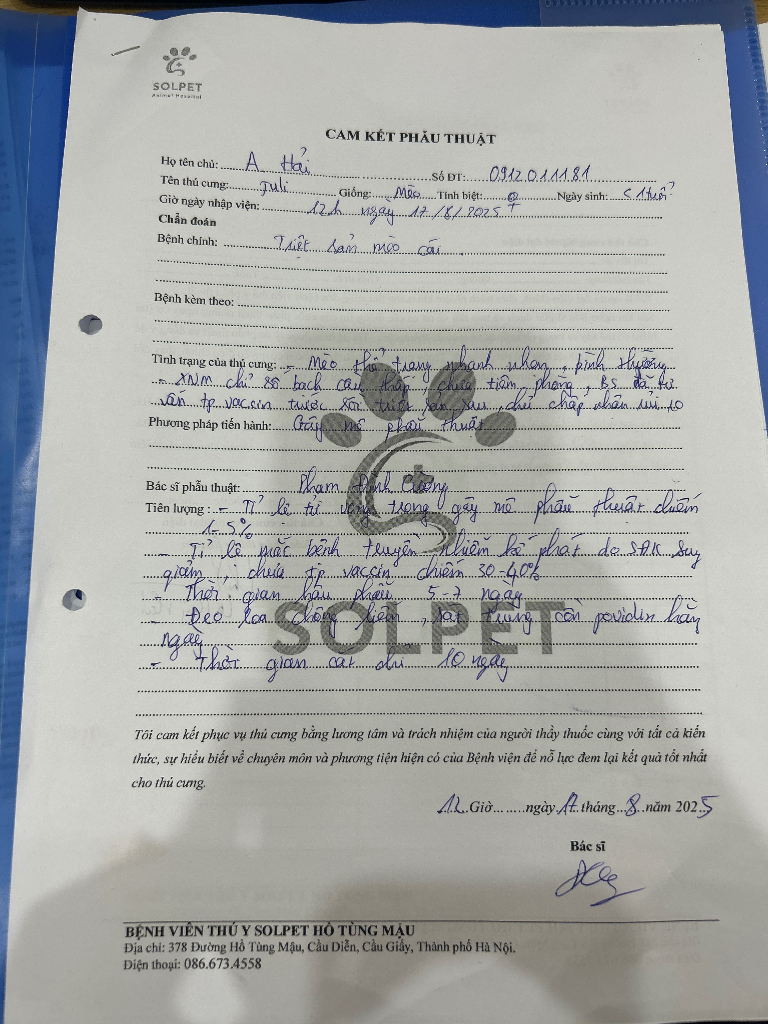 SOLPET
Animal Hospital
CAM KẾT PHẪU THUẬT
Họ tên chủ: A Hải Số ĐT: 0912011181
Tên thú cưng: Juli Giống: Mèo Tính biệt: ♀ Ngày sinh: < 1 tuổi
Giờ ngày nhập viện: 12h ngày 17/8/2025
Chẩn đoán
Bệnh chính: Triệt sản mèo cái
Bệnh kèm theo:
Tình trạng của thú cưng: - Mèo thể trạng nhanh nhẹn, bình thường
- XNM chỉ số bạch cầu thấp, chưa tiêm phòng, BS đã tư
vấn tp vaccin trước rồi triệt sản sau, chủ chấp nhận rủi ro
Phương pháp tiến hành: Gây mê phẫu thuật
Bác sĩ phẫu thuật: Phạm Đình Cương
Tiên lượng: - Tỉ lệ tử vong trong gây mê phẫu thuật chiếm
1-5%
- Tỉ lệ mắc bệnh truyền nhiễm kế phát do SĐK suy
giảm, chưa tp vaccin chiếm 30-40%
- Thời gian hậu phẫu 5-7 ngày
- Đeo loa chống liếm, sát trùng cồn povidin hằng
ngày
- Thời gian cắt chỉ 10 ngày
SOLPET
Tôi cam kết phục vụ thú cưng bằng lương tâm và trách nhiệm của người thầy thuốc cùng với tất cả kiến
thức, sự hiểu biết về chuyên môn và phương tiện hiện có của Bệnh viện để nỗ lực đem lại kết quả tốt nhất
cho thú cưng.
12 Giờ ngày 17 tháng 8 năm 2025
Bác sĩ
BỆNH VIỆN THÚ Y SOLPET HỒ TÙNG MẬU
Địa chỉ: 378 Đường Hồ Tùng Mậu, Cầu Diễn, Cầu Giấy, Thành phố Hà Nội.
Điện thoại: 086.673.4558